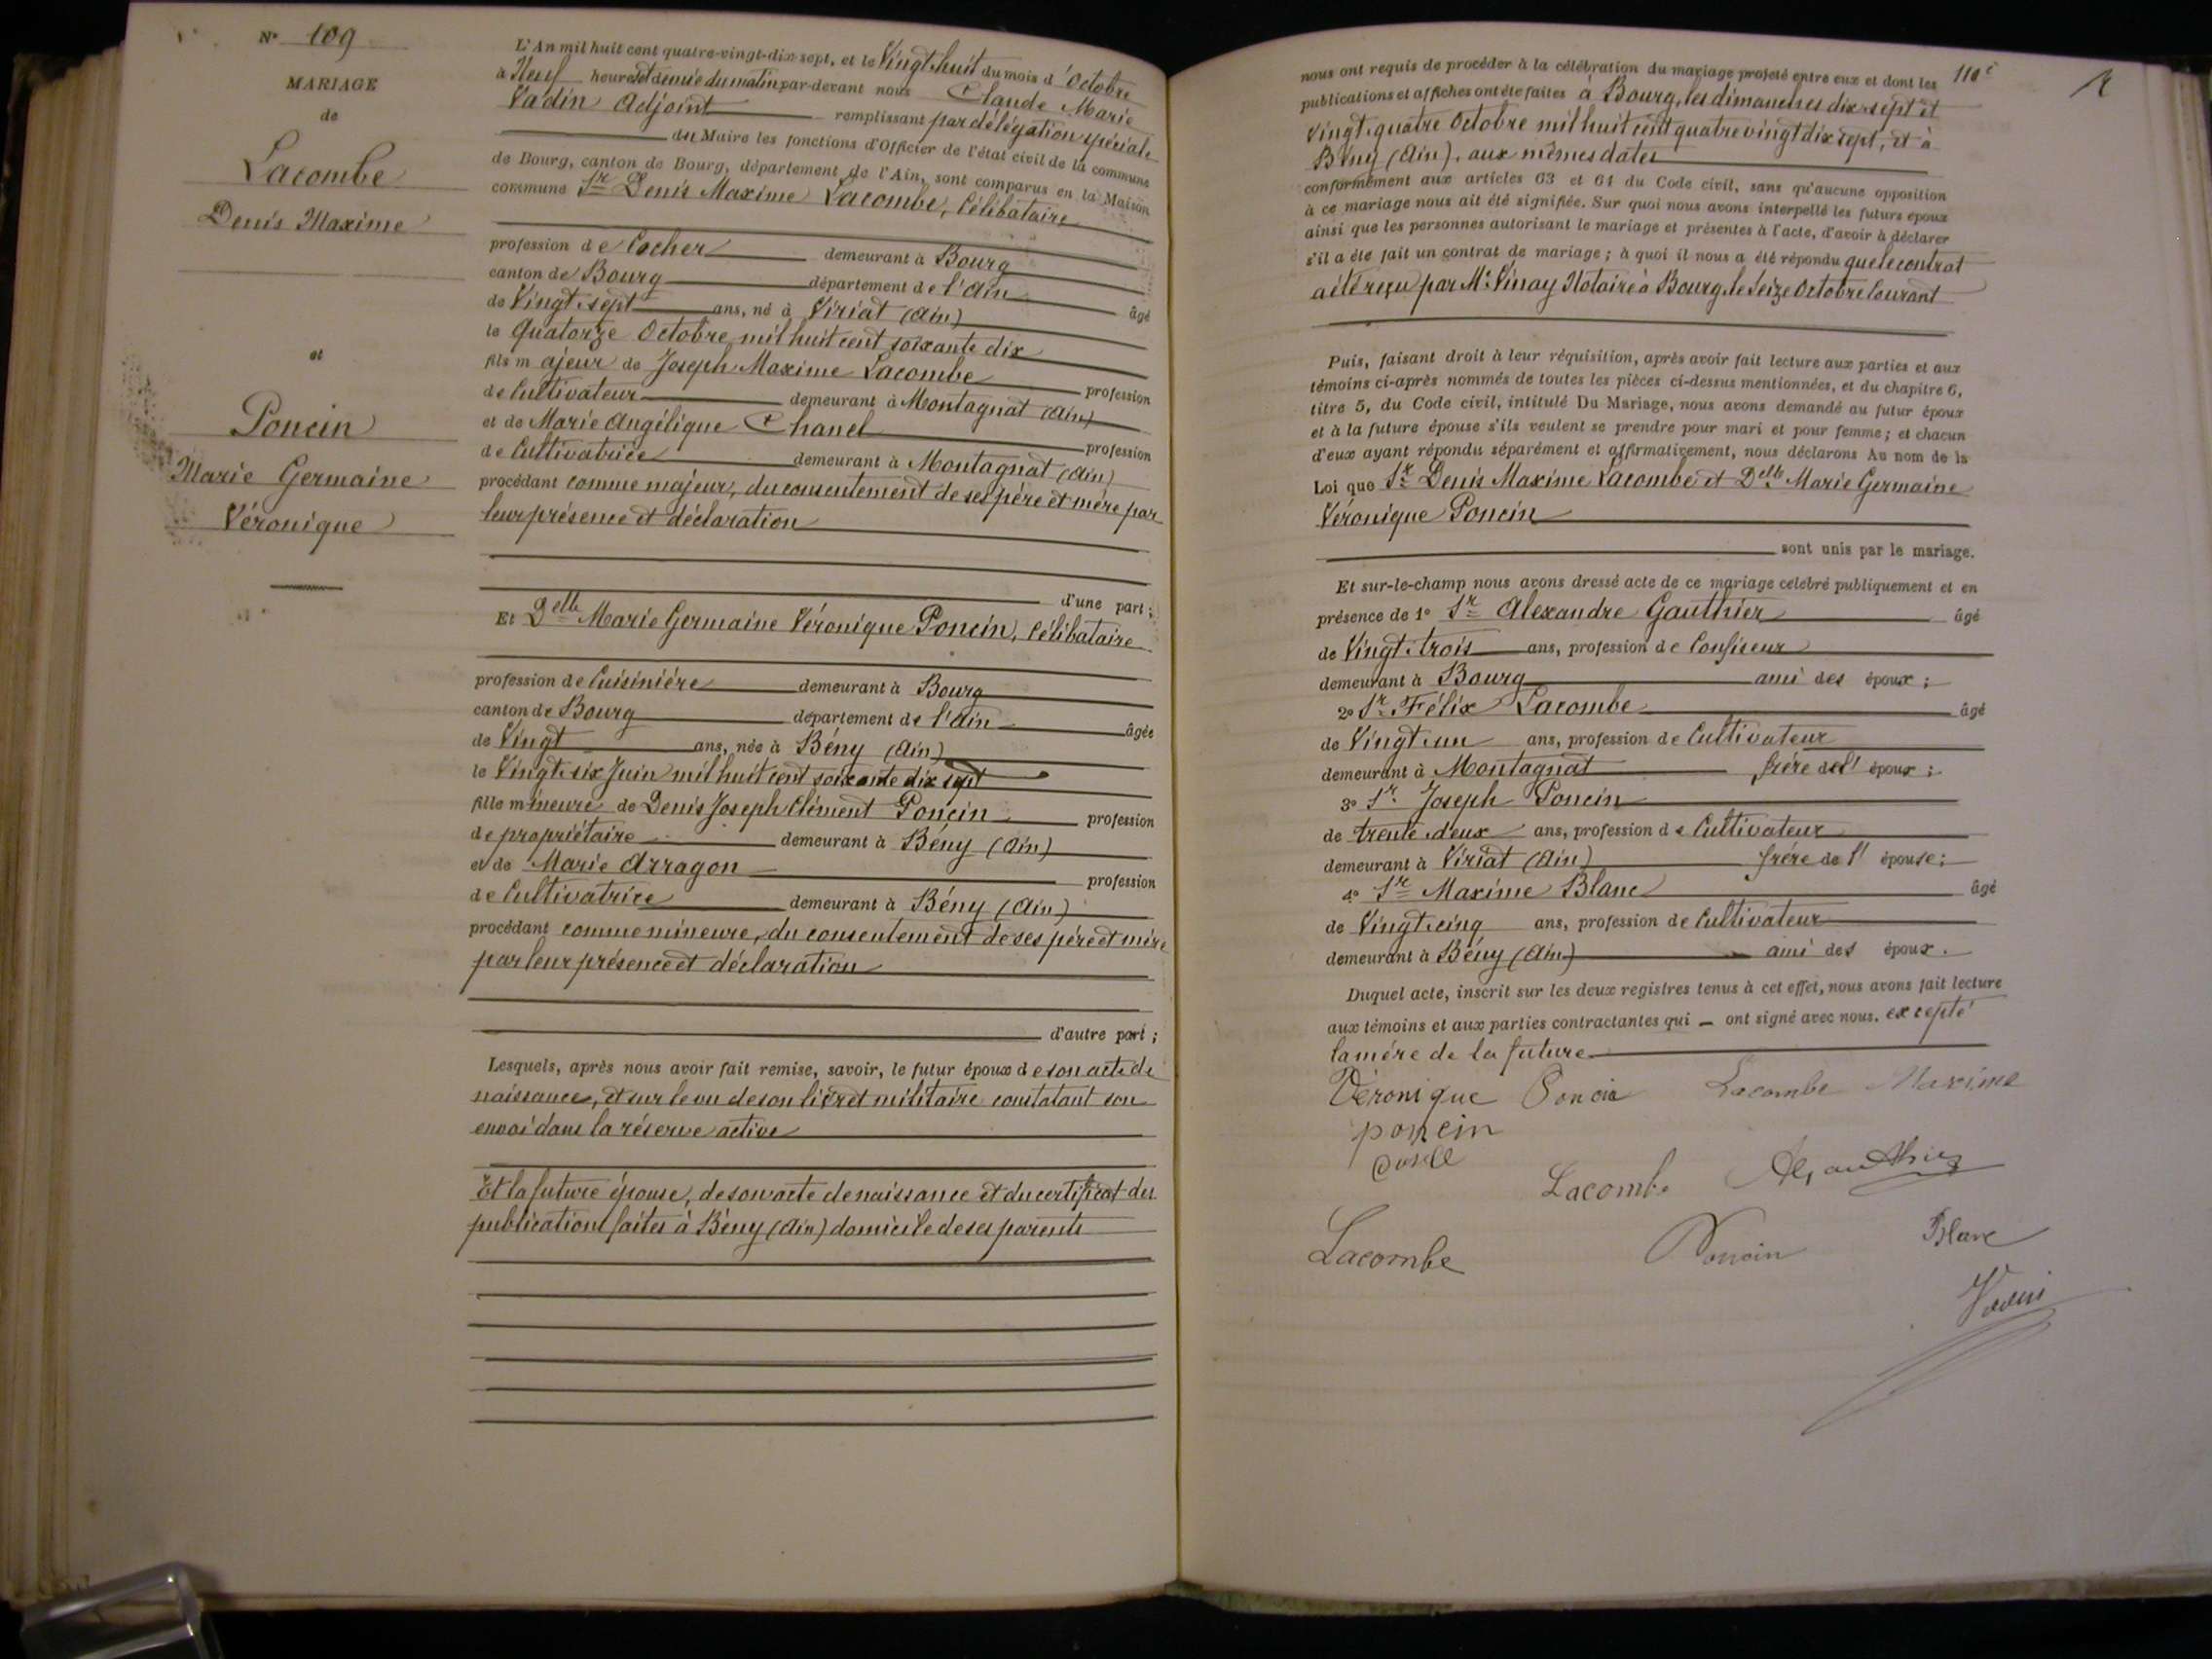 N° 109
MARIAGE
de
Lacombe
Denis Maxime
et
Poncin
Marie Germaine
Véronique
L'An mil huit cent quatre-vingt-dix-sept, et le Vingt huit du mois d'Octobre
à Neuf heures et demie du matin par-devant nous Claude Marie
Vadin Adjoint remplissant par délégation spéciale
du Maire les fonctions d'Officier de l'état civil de la commune
de Bourg, canton de Bourg, département de l'Ain, sont comparus en la Maison
commune Sr Denis Maxime Lacombe, Célibataire
profession de Cocher demeurant à Bourg
canton de Bourg département de l'Ain âgé
de Vingt sept ans, né à Viriat (Ain)
le Quatorze Octobre mil huit cent soixante dix
fils majeur de Joseph Maxime Lacombe profession
de Cultivateur demeurant à Montagnat (Ain)
et de Marie Angélique Chanel profession
de Cultivatrice demeurant à Montagnat (Ain)
procédant comme majeur, du consentement de ses père et mère par
leur présence et déclaration
d'une part;
Et Delle Marie Germaine Véronique Poncin, Célibataire
profession de Cuisinière demeurant à Bourg
canton de Bourg département de l'Ain âgée
de Vingt ans, née à Bény (Ain)
le Vingt six Juin mil huit cent soixante dix sept
fille mineure de Denis Joseph Clément Poncin profession
de propriétaire demeurant à Bény (Ain)
et de Marie Arragon profession
de Cultivatrice demeurant à Bény (Ain)
procédant comme mineure, du consentement de ses père et mère
par leur présence et déclaration
d'autre part;
Lesquels, après nous avoir fait remise, savoir, le futur époux de son acte de
naissance, et sur le vu de son livret militaire constatant son
envoi dans la réserve active
Et la future épouse, de son acte de naissance et du certificat des
publications faites à Bény (Ain) domicile de ses parents
110e
nous ont requis de procéder à la célébration du mariage projeté entre eux et dont les
publications et affiches ont été faites à Bourg, les dimanches dix sept et
Vingt quatre Octobre mil huit cent quatre vingt dix sept, et à
Bény (Ain), aux mêmes dates
conformément aux articles 63 et 64 du Code civil, sans qu'aucune opposition
à ce mariage nous ait été signifiée. Sur quoi nous avons interpellé les futurs époux
ainsi que les personnes autorisant le mariage et présentes à l'acte, d'avoir à déclarer
s'il a été fait un contrat de mariage; à quoi il nous a été répondu que le contrat
a été reçu par Me Vinay Notaire à Bourg, le Seize Octobre Courant
Puis, faisant droit à leur réquisition, après avoir fait lecture aux parties et aux
témoins ci-après nommés de toutes les pièces ci-dessus mentionnées, et du chapitre 6,
titre 5, du Code civil, intitulé Du Mariage, nous avons demandé au futur époux
et à la future épouse s'ils veulent se prendre pour mari et pour femme; et chacun
d'eux ayant répondu séparément et affirmativement, nous déclarons Au nom de la
Loi que Sr Denis Maxime Lacombe et Delle Marie Germaine
Véronique Poncin
sont unis par le mariage.
Et sur-le-champ nous avons dressé acte de ce mariage célébré publiquement et en
présence de 1° Sr Alexandre Gauthier âgé
de Vingt trois ans, profession de Confiseur
demeurant à Bourg ami des époux;
2° Sr Félix Lacombe âgé
de Vingt un ans, profession de Cultivateur
demeurant à Montagnat frère de l'époux;
3° Sr Joseph Poncin
de trente deux ans, profession de Cultivateur
demeurant à Viriat (Ain) frère de l'épouse;
4° Sr Maxime Blanc âgé
de Vingt cinq ans, profession de Cultivateur
demeurant à Bény (Ain) ami des époux.
Duquel acte, inscrit sur les deux registres tenus à cet effet, nous avons fait lecture
aux témoins et aux parties contractantes qui – ont signé avec nous. excepté
la mère de la future
Véronique Poncin Lacombe Maxime
poncin
Lacombe Al, Gauthier
Lacombe Poncin Blanc
Vadin